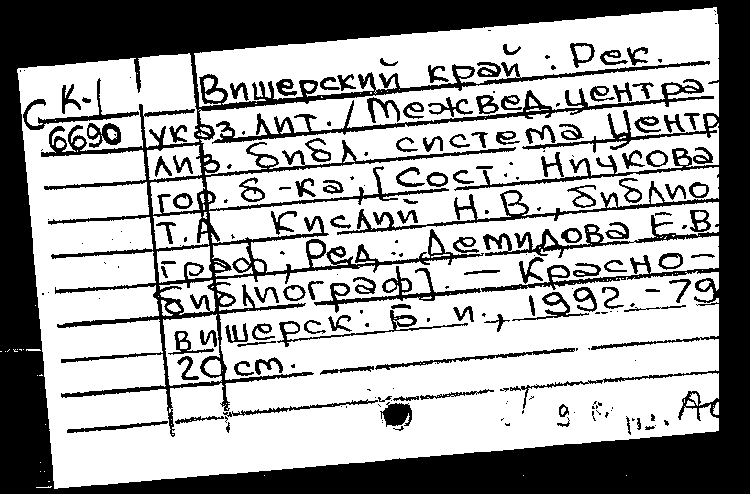 К-1 Вишерский край : Рек.
С 6690 указ. лит. / Межвед. центра-
лиз. библ. система, Центр
гор. б-ка; [Сост.: Ничкова
Т.А., Кислий Н.В., библио
граф; Ред.: Демидова Е.В.
библиограф]. — Красно-
вишерск: Б. и., 1992. - 79
20 cm.